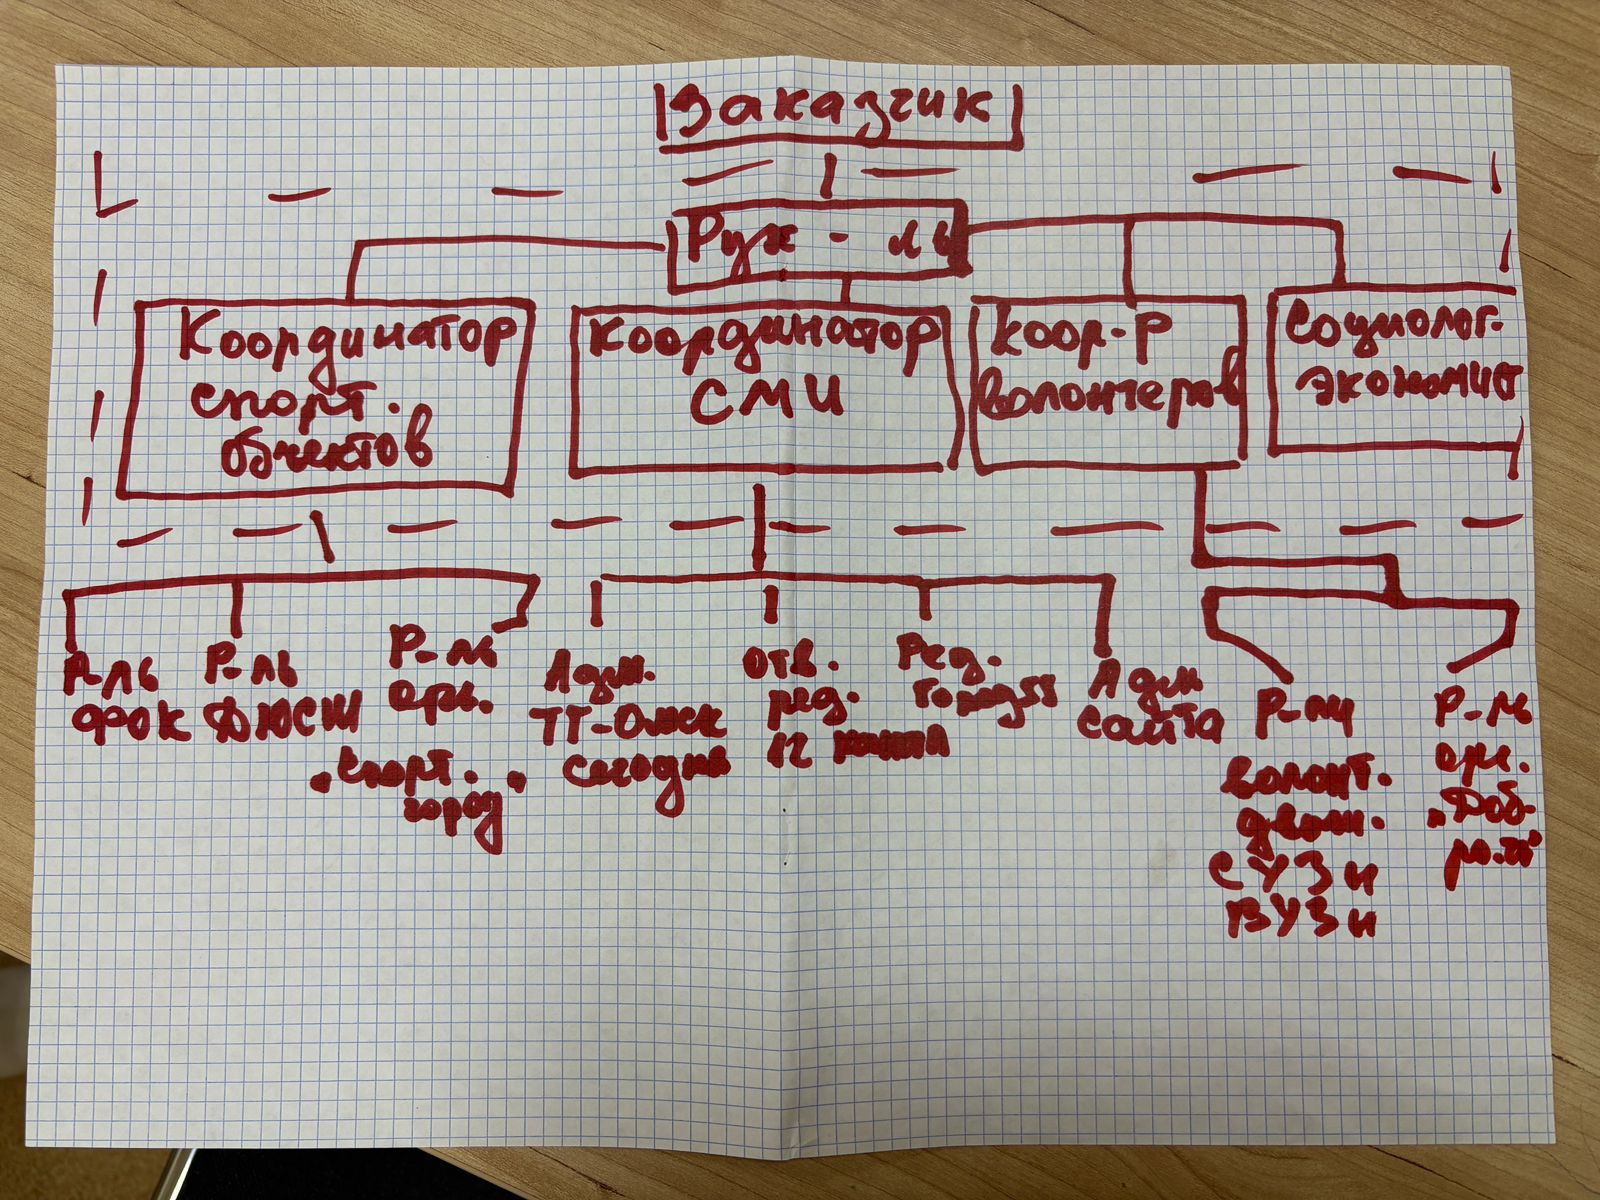 Заказчик
Рук-ль
Координатор
спорт.
объектов
Координатор
СМИ
Коор-р
волонтеров
Социолог-
экономист
Р-ль
ФОК
Р-ль
ДЮСШ
Р-ль
орг.
"Спорт.
город"
Адм.
ТГ-Омск
сегодня
Отв.
ред.
12 канала
Ред.
Город55
Адм
сайта
Р-ли
волонт.
движ.
СУЗи
ВУЗи
Р-ль
орг.
"Доб-